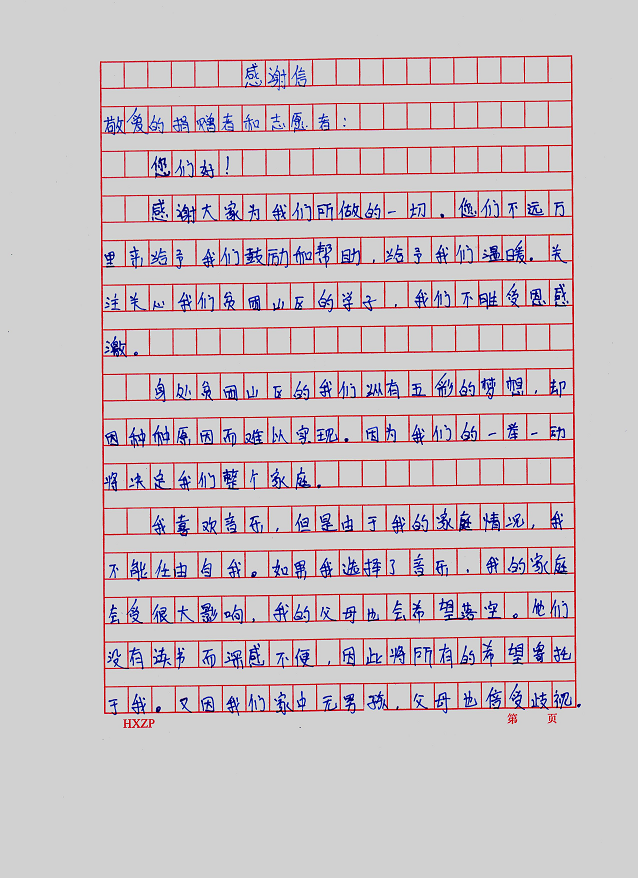 感谢信
敬爱的捐赠者和志愿者：
您们好！
感谢大家为我们所做的一切。您们不远万
里来给予我们鼓励和帮助，给予我们温暖。关
注关心我们贫困山区的学子，我们不胜受恩感
激。
身处贫困山区的我们纵有五彩的梦想，却
因种种原因而难以实现。因为我们的一举一动
将决定我们整个家庭。
我喜欢音乐，但是由于我的家庭情况，我
不能任由自我。如果我选择了音乐，我的家庭
会受很大影响，我的父母也会希望落空。他们
没有读书而深感不便，因此将所有的希望寄托
于我。又因我们家中无男孩，父母也倍受歧视。
HXZP 第 页